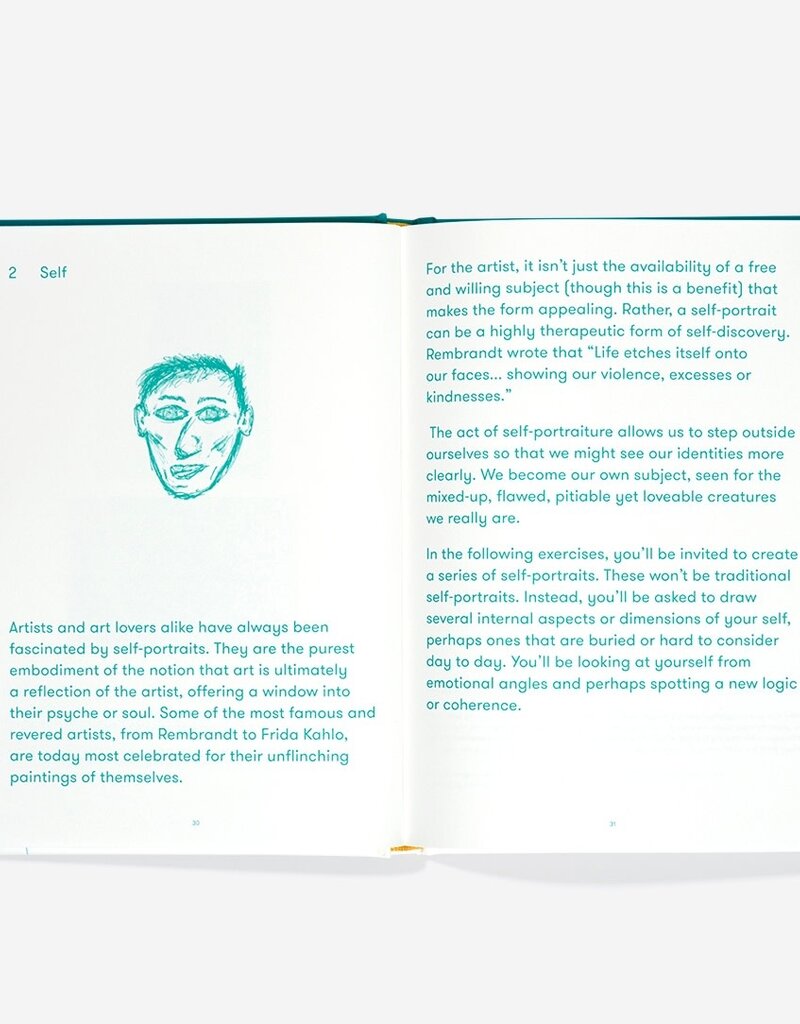 2 Self
Artists and art lovers alike have always been
fascinated by self-portraits. They are the purest
embodiment of the notion that art is ultimately
a reflection of the artist, offering a window into
their psyche or soul. Some of the most famous and
revered artists, from Rembrandt to Frida Kahlo,
are today most celebrated for their unflinching
paintings of themselves.
30
For the artist, it isn’t just the availability of a free
and willing subject (though this is a benefit) that
makes the form appealing. Rather, a self-portrait
can be a highly therapeutic form of self-discovery.
Rembrandt wrote that “Life etches itself onto
our faces... showing our violence, excesses or
kindnesses.”
The act of self-portraiture allows us to step outside
ourselves so that we might see our identities more
clearly. We become our own subject, seen for the
mixed-up, flawed, pitiable yet loveable creatures
we really are.
In the following exercises, you’ll be invited to create
a series of self-portraits. These won’t be traditional
self-portraits. Instead, you’ll be asked to draw
several internal aspects or dimensions of your self,
perhaps ones that are buried or hard to consider
day to day. You’ll be looking at yourself from
emotional angles and perhaps spotting a new logic
or coherence.
31